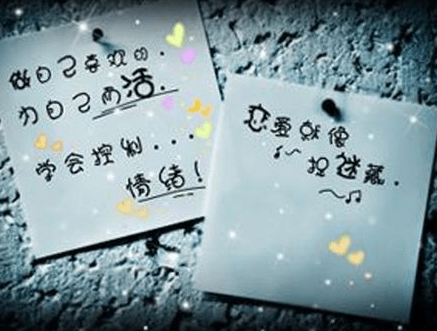 做自己喜欢的.
为自己而活.
学会控制...
情绪！
恋爱就像
捉迷藏.